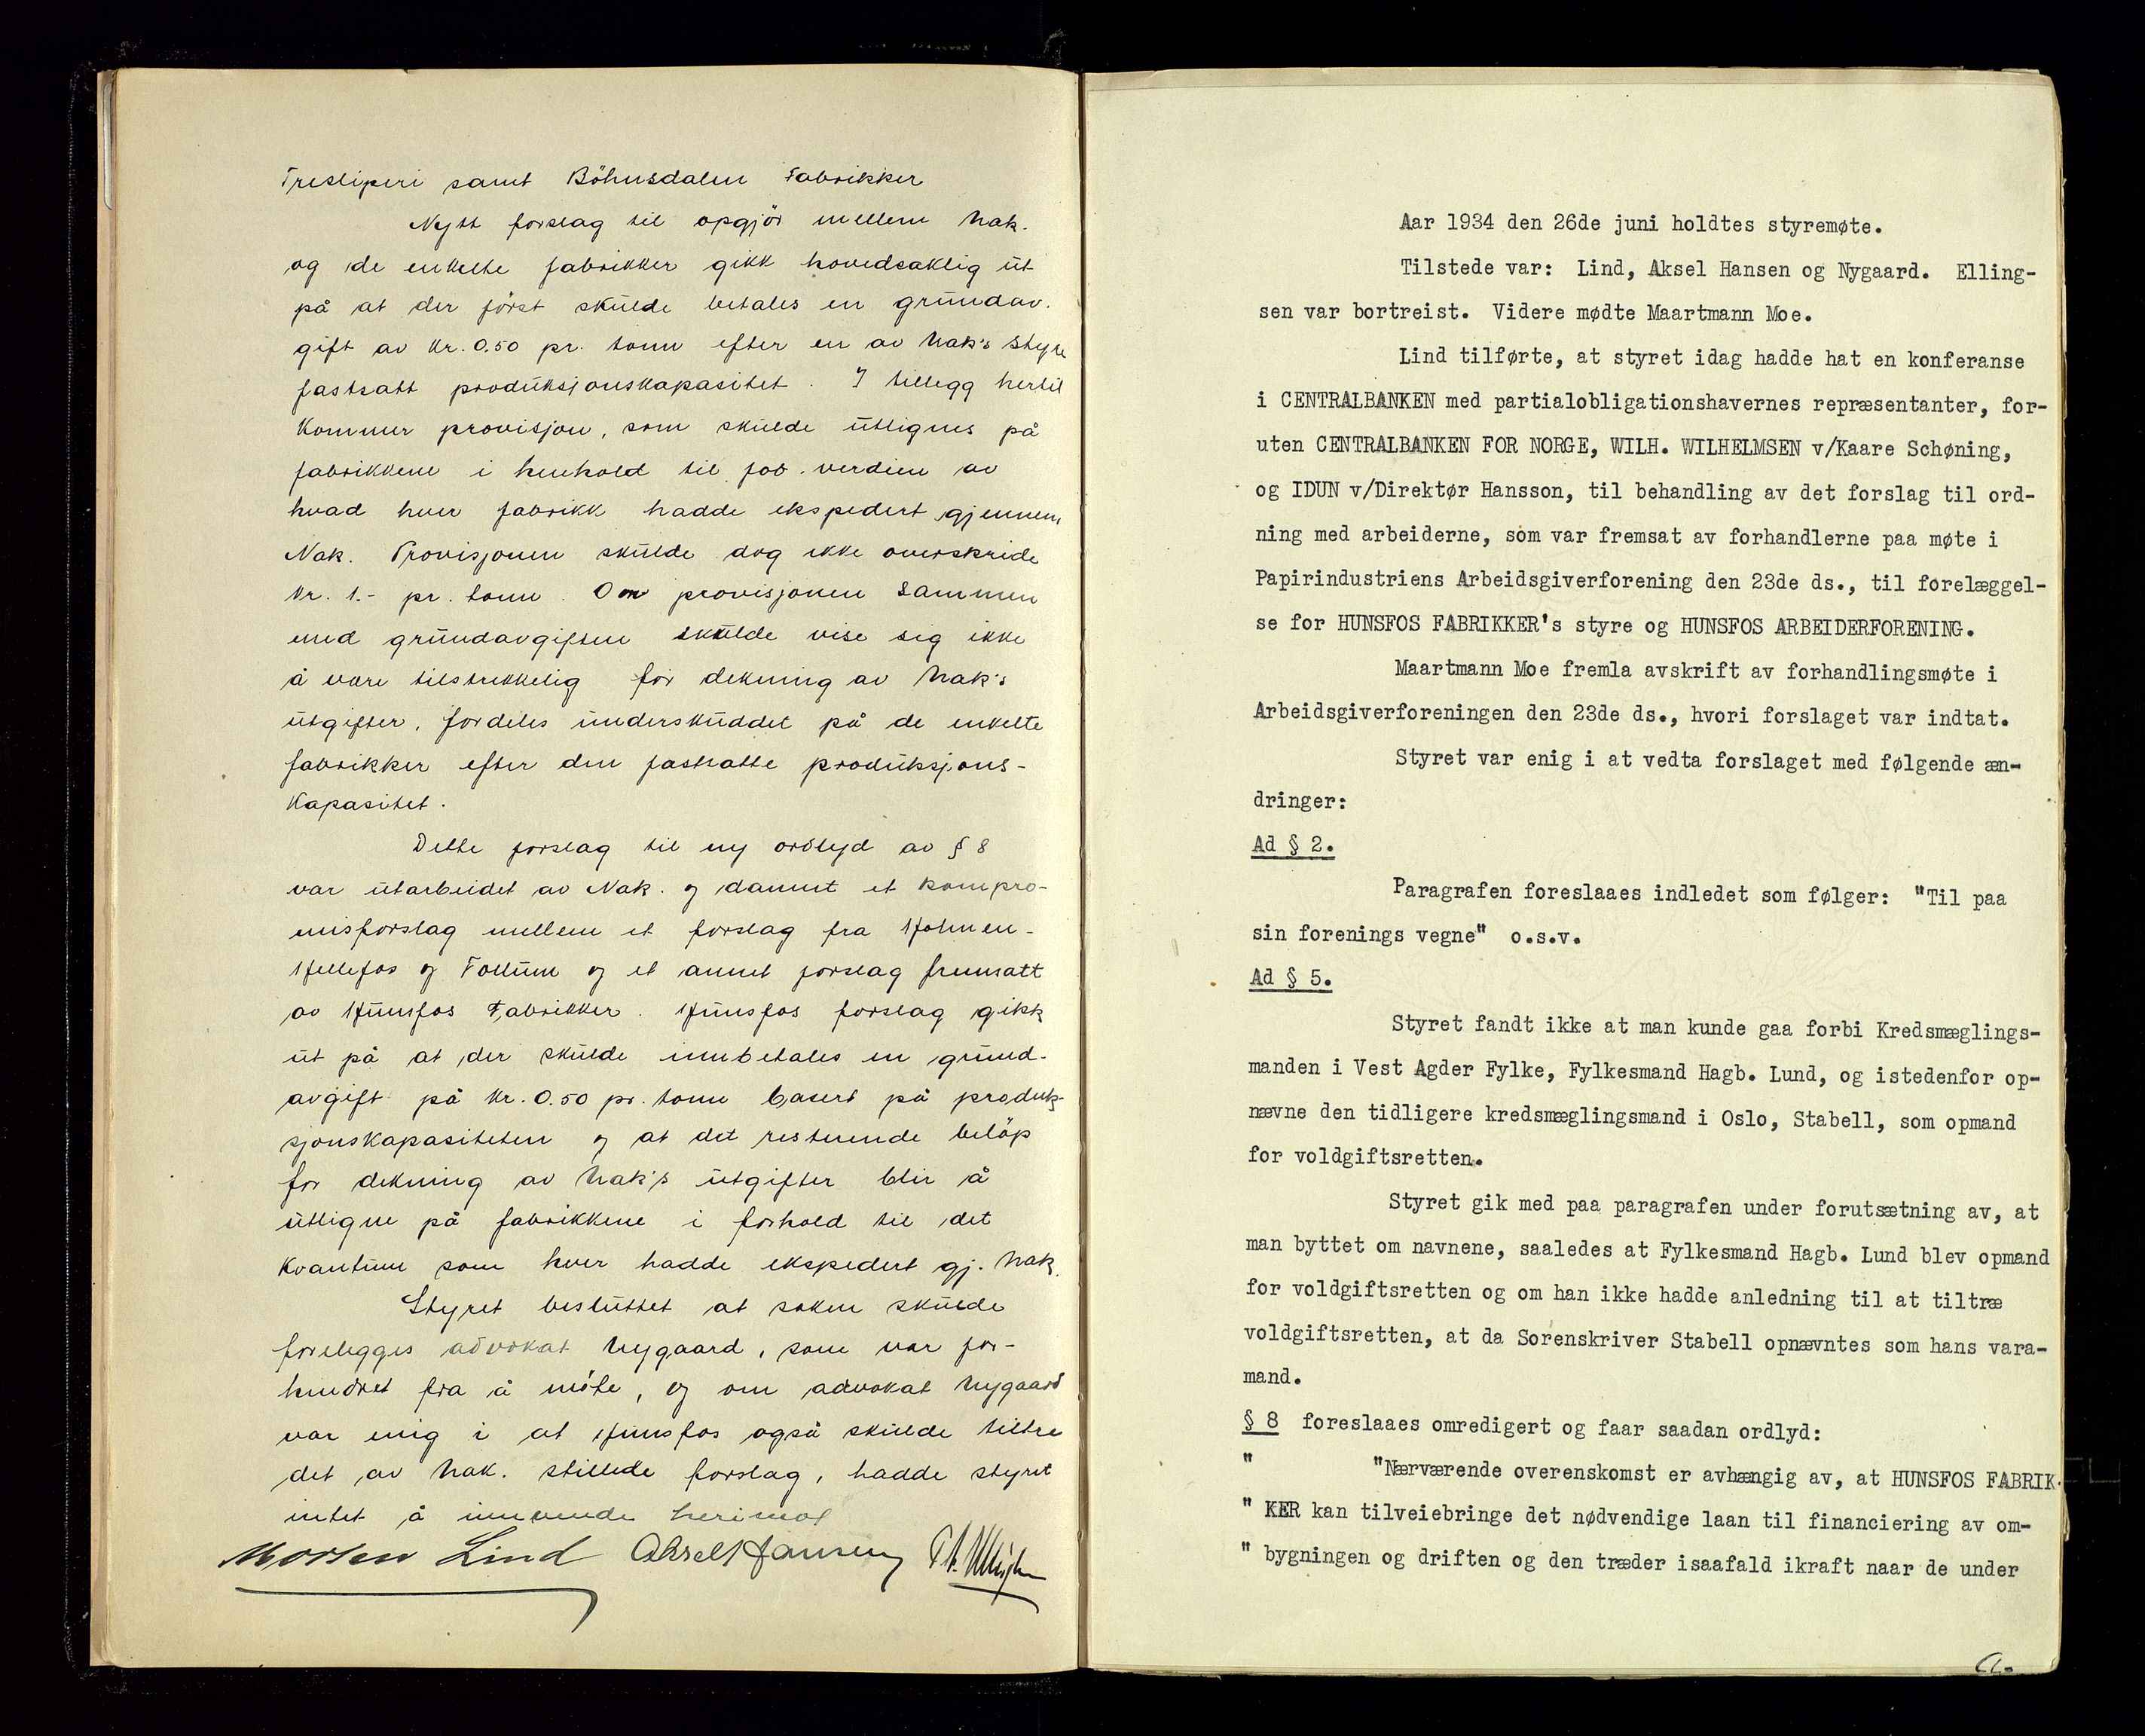 Tresliperi samt Böhnsdalen Fabrikker
Nytt forslag til opgjör mellem Nak.
og de enkelte fabrikker gikk hovedsaklig ut
på at der först skulde betales en grundav-
gift av kr. 0.50 pr. tonn efter en av Nak's styre
fastsatt produksjonskapasitet. I tillegg hertil
kommer provisjon, som skulde utlignes på
fabrikkene i henhold til fob. verdien av
hvad hver fabrikk hadde ekspedert gjennem
Nak. Provisjonen skulde dog ikke overskride
kr. 1.- pr. tonn. Om provisjonen sammen
med grundavgiften skulde vise sig ikke
å være tilstrekkelig for dekning av Nak's
utgifter, fordeles underskuddet på de enkelte
fabrikker efter den fastsatte produksjons-
kapasitet.
Dette forslag til ny ordlyd av § 8
var utarbeidet av Nak. og dannet et kompro-
misforslag mellem et forslag fra Hofmen-
Hellefos og Follum og et annet forslag fremsatt
av Hunsfos Fabrikker. Hunsfos forslag gikk
ut på at der skulde innbetales en grund-
avgift på kr. 0.50 pr. tonn basert på produk-
sjonskapasiteten og at det resterende beløp
for dekning av Nak's utgifter blir å
utligne på fabrikkene i forhold til det
kvantum som hver hadde ekspedert gj. Nak.
Styret besluttet at saken skulde
forelegges advokat Nygaard, som var for-
hindret fra å möte, og om advokat Nygaard
var enig i at Hunsfos også skulde tiltre
det av Nak. stillede forslag, hadde styret
intet å innvende herimot
Morten Lind Aksel Hansen
Aar 1934 den 26de juni holdtes styremøte.
Tilstede var: Lind, Aksel Hansen og Nygaard. Elling-
sen var bortreist. Videre mødte Maartmann Moe.
Lind tilførte, at styret idag hadde hat en konferanse
i CENTRALBANKEN med partialobligationshavernes repræsentanter, for-
uten CENTRALBANKEN FOR NORGE, WILH. WILHELMSEN v/Kaare Schøning,
og IDUN v/Direktør Hansson, til behandling av det forslag til ord-
ning med arbeiderne, som var fremsat av forhandlerne paa møte i
Papirindustriens Arbeidsgiverforening den 23de ds., til forelæggel-
se for HUNSFOS FABRIKKER's styre og HUNSFOS ARBEIDERFORENING.
Maartmann Moe fremla avskrift av forhandlingsmøte i
Arbeidsgiverforeningen den 23de ds., hvori forslaget var indtat.
Styret var enig i at vedta forslaget med følgende æn-
dringer:
Ad § 2.
Paragrafen foreslaaes indledet som følger: "Til paa
sin forenings vegne" o.s.v.
Ad § 5.
Styret fandt ikke at man kunde gaa forbi Kredsmæglings-
manden i Vest Agder Fylke, Fylkesmand Hagb. Lund, og istedenfor op-
nævne den tidligere kredsmæglingsmand i Oslo, Stabell, som opmand
for voldgiftsretten.
Styret gik med paa paragrafen under forutsætning av, at
man byttet om navnene, saaledes at Fylkesmand Hagb. Lund blev opmand
for voldgiftsretten og om han ikke hadde anledning til at tiltræ
voldgiftsretten, at da Sorenskriver Stabell opnævntes som hans vara-
mand.
§ 8 foreslaaes omredigert og faar saadan ordlyd:
" "Nærværende overenskomst er avhængig av, at HUNSFOS FABRIK-
" KER kan tilveiebringe det nødvendige laan til financiering av om-
" bygningen og driften og den træder isaafald ikraft naar de under